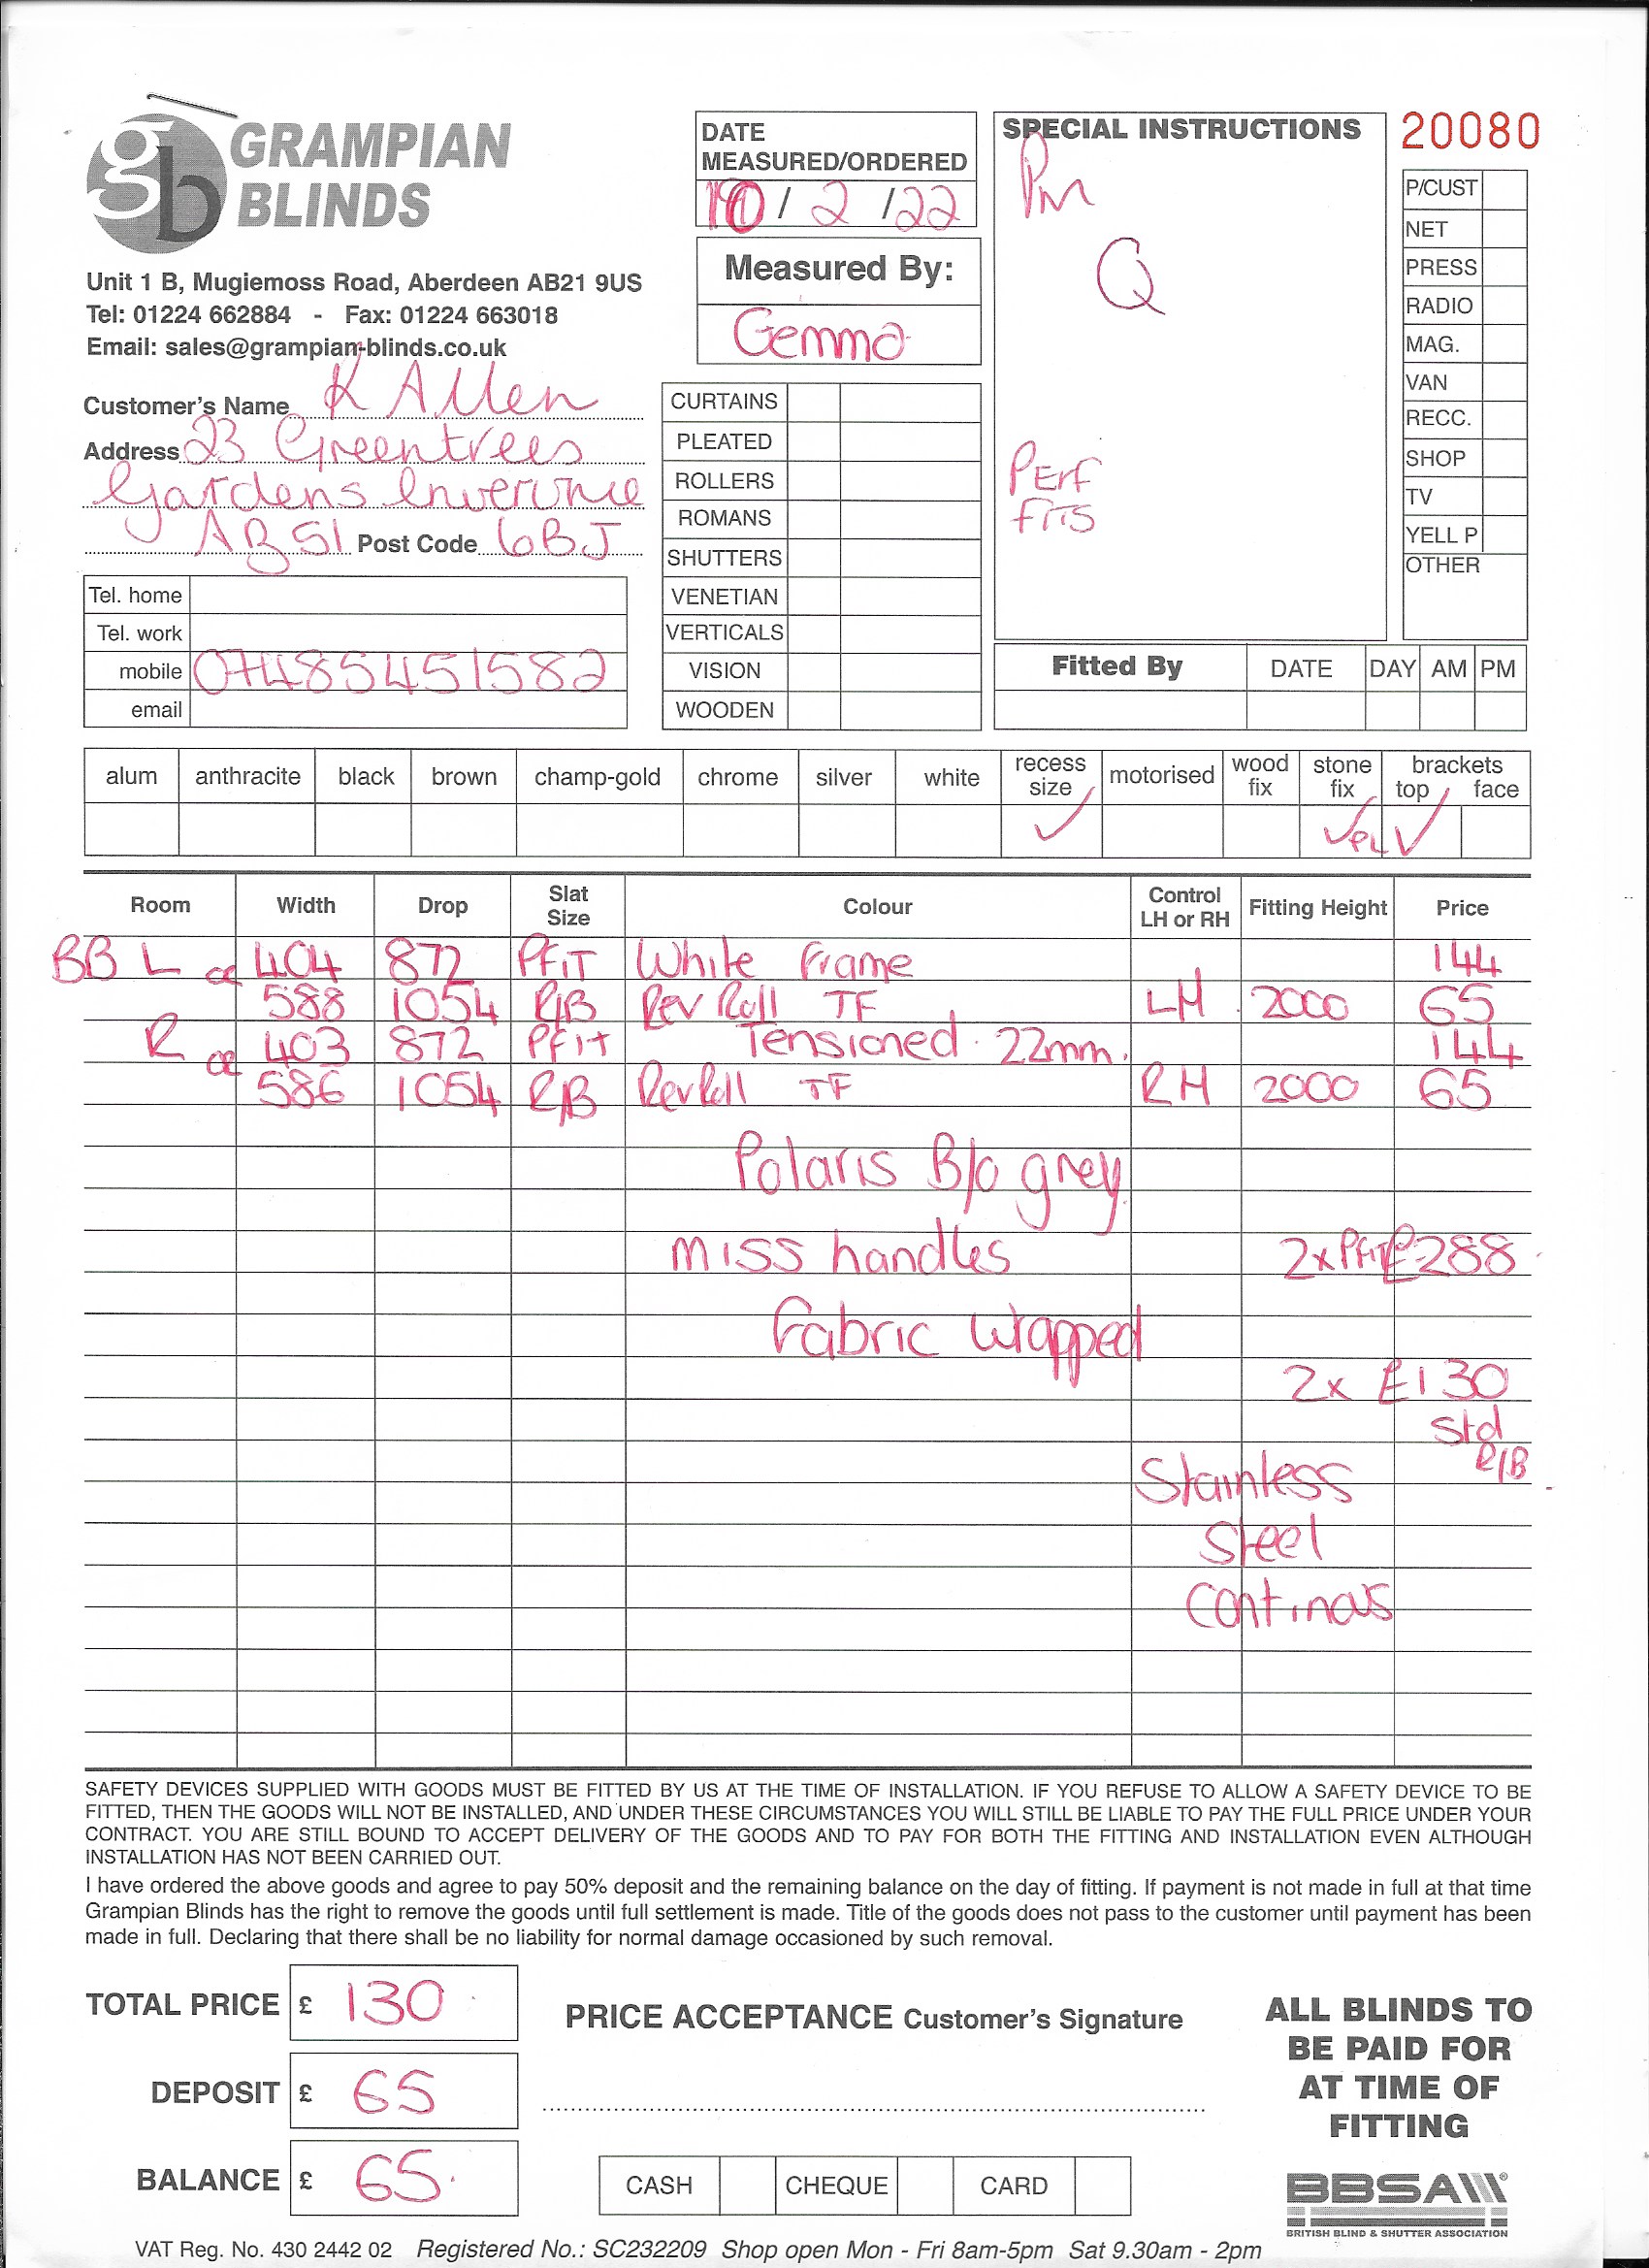 gb GRAMPIAN
BLINDS
Unit 1 B, Mugiemoss Road, Aberdeen AB21 9US
Tel: 01224 662884 - Fax: 01224 663018
Email: sales@grampian-blinds.co.uk
Customer's Name K Allen
Address 23 Greentrees
Gardens Inverurie
AB51 Post Code 6BJ
Tel. home
Tel. work
mobile 07485451582
email
DATE
MEASURED/ORDERED
10/2/22
Measured By:
Gemma
CURTAINS
PLEATED
ROLLERS
ROMANS
SHUTTERS
VENETIAN
VERTICALS
VISION
WOODEN
SPECIAL INSTRUCTIONS
Pm
Q
PErf
fits
20080
P/CUST
NET
PRESS
RADIO
MAG.
VAN
RECC.
SHOP
TV
YELL P
OTHER
Fitted By DATE DAY AM PM
alum anthracite black brown champ-gold chrome silver white recess size motorised wood fix stone fix brackets top face
✓ ✓ ✓
Room Width Drop Slat Size Colour Control LH or RH Fitting Height Price
BB L 404 872 PFiT White Frame 144
or 588 1054 R/B Rev Roll TF LH 2000 65
R 403 872 Pfit Tensioned 22mm. 144
or 586 1054 R/B Rev Roll TF RH 2000 65
Polaris B/o grey
miss handles 2x PFiT £288
Fabric Wrapped
2x £130
Std
R/B
Stainless
Steel
Continous
SAFETY DEVICES SUPPLIED WITH GOODS MUST BE FITTED BY US AT THE TIME OF INSTALLATION. IF YOU REFUSE TO ALLOW A SAFETY DEVICE TO BE
FITTED, THEN THE GOODS WILL NOT BE INSTALLED, AND UNDER THESE CIRCUMSTANCES YOU WILL STILL BE LIABLE TO PAY THE FULL PRICE UNDER YOUR
CONTRACT. YOU ARE STILL BOUND TO ACCEPT DELIVERY OF THE GOODS AND TO PAY FOR BOTH THE FITTING AND INSTALLATION EVEN ALTHOUGH
INSTALLATION HAS NOT BEEN CARRIED OUT.
I have ordered the above goods and agree to pay 50% deposit and the remaining balance on the day of fitting. If payment is not made in full at that time
Grampian Blinds has the right to remove the goods until full settlement is made. Title of the goods does not pass to the customer until payment has been
made in full. Declaring that there shall be no liability for normal damage occasioned by such removal.
TOTAL PRICE £ 130
DEPOSIT £ 65
BALANCE £ 65
PRICE ACCEPTANCE Customer's Signature
CASH CHEQUE CARD
ALL BLINDS TO
BE PAID FOR
AT TIME OF
FITTING
BBSA
BRITISH BLIND & SHUTTER ASSOCIATION
VAT Reg. No. 430 2442 02 Registered No.: SC232209 Shop open Mon - Fri 8am-5pm Sat 9.30am - 2pm